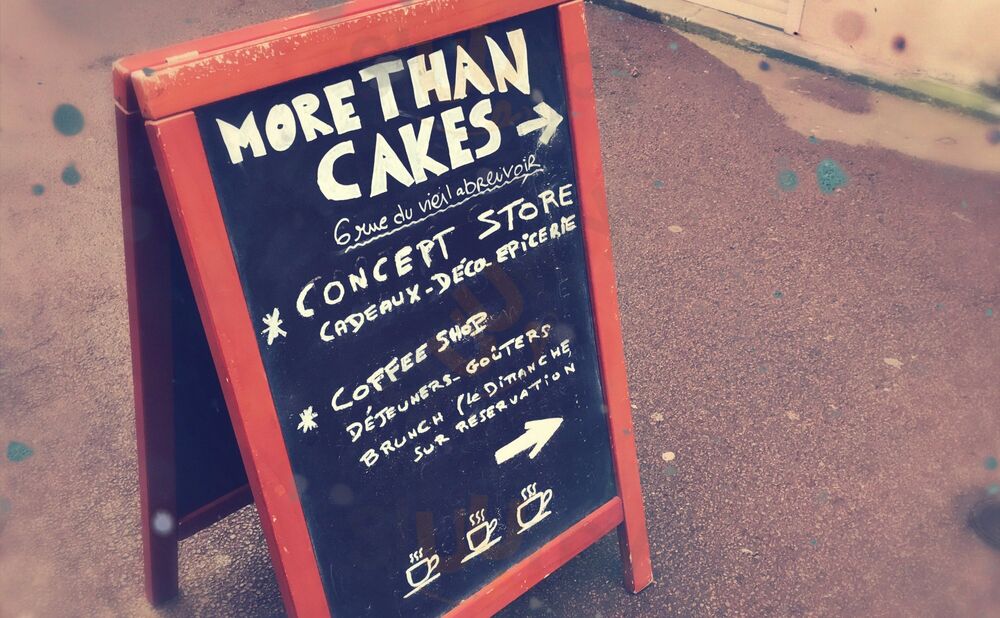 MORE THAN
CAKES
6 rue du vieil abreuvoir
* CONCEPT STORE
CADEAUX - DÉCO - EPICERIE
* COFFEE SHOP
DÉJEUNERS - GOÛTERS
BRUNCH (le DIMANCHE,
SUR RESERVATION